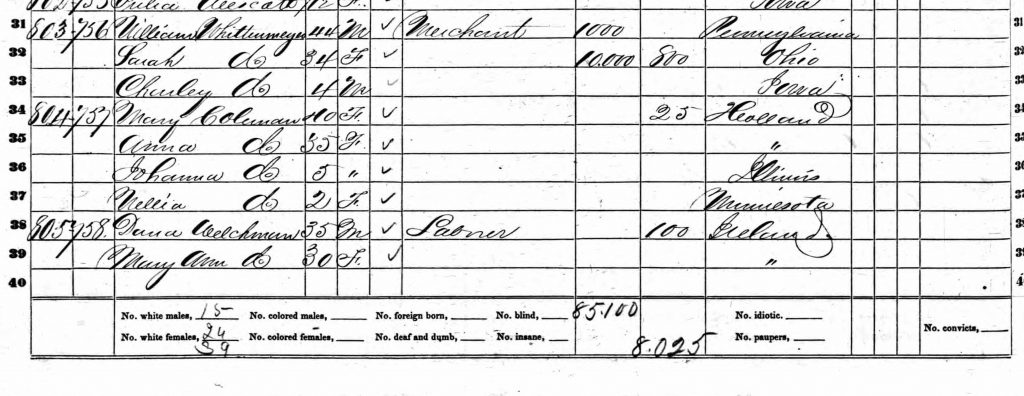 Iowa
31 803 756 William Whittenmeyer 44 M ✓ Merchant 1000 Pennsylvania 31
32 Sarah do 34 F ✓ 10.000 800 Ohio
33 Charley do 4 M ✓ Iowa
34 804 757 Mary Coleman 40 F. ✓ 25 Holland
35 Anna do 35 F. ✓ "
36 Johanna do 5 " ✓ Illinois
37 Nellia do 2 F ✓ Minnesota
38 805 758 Welchman 35 M ✓ Labner 100 Ireland
39 Mary Ann do 30 F. ✓ "
40
No. white males, 15 No. colored males, No. foreign born, No. blind, 85.100 No. idiotic.
No. white females, 24 No. colored females, No. deaf and dumb, No. insane, 8.025 No. paupers, No. convicts,
39